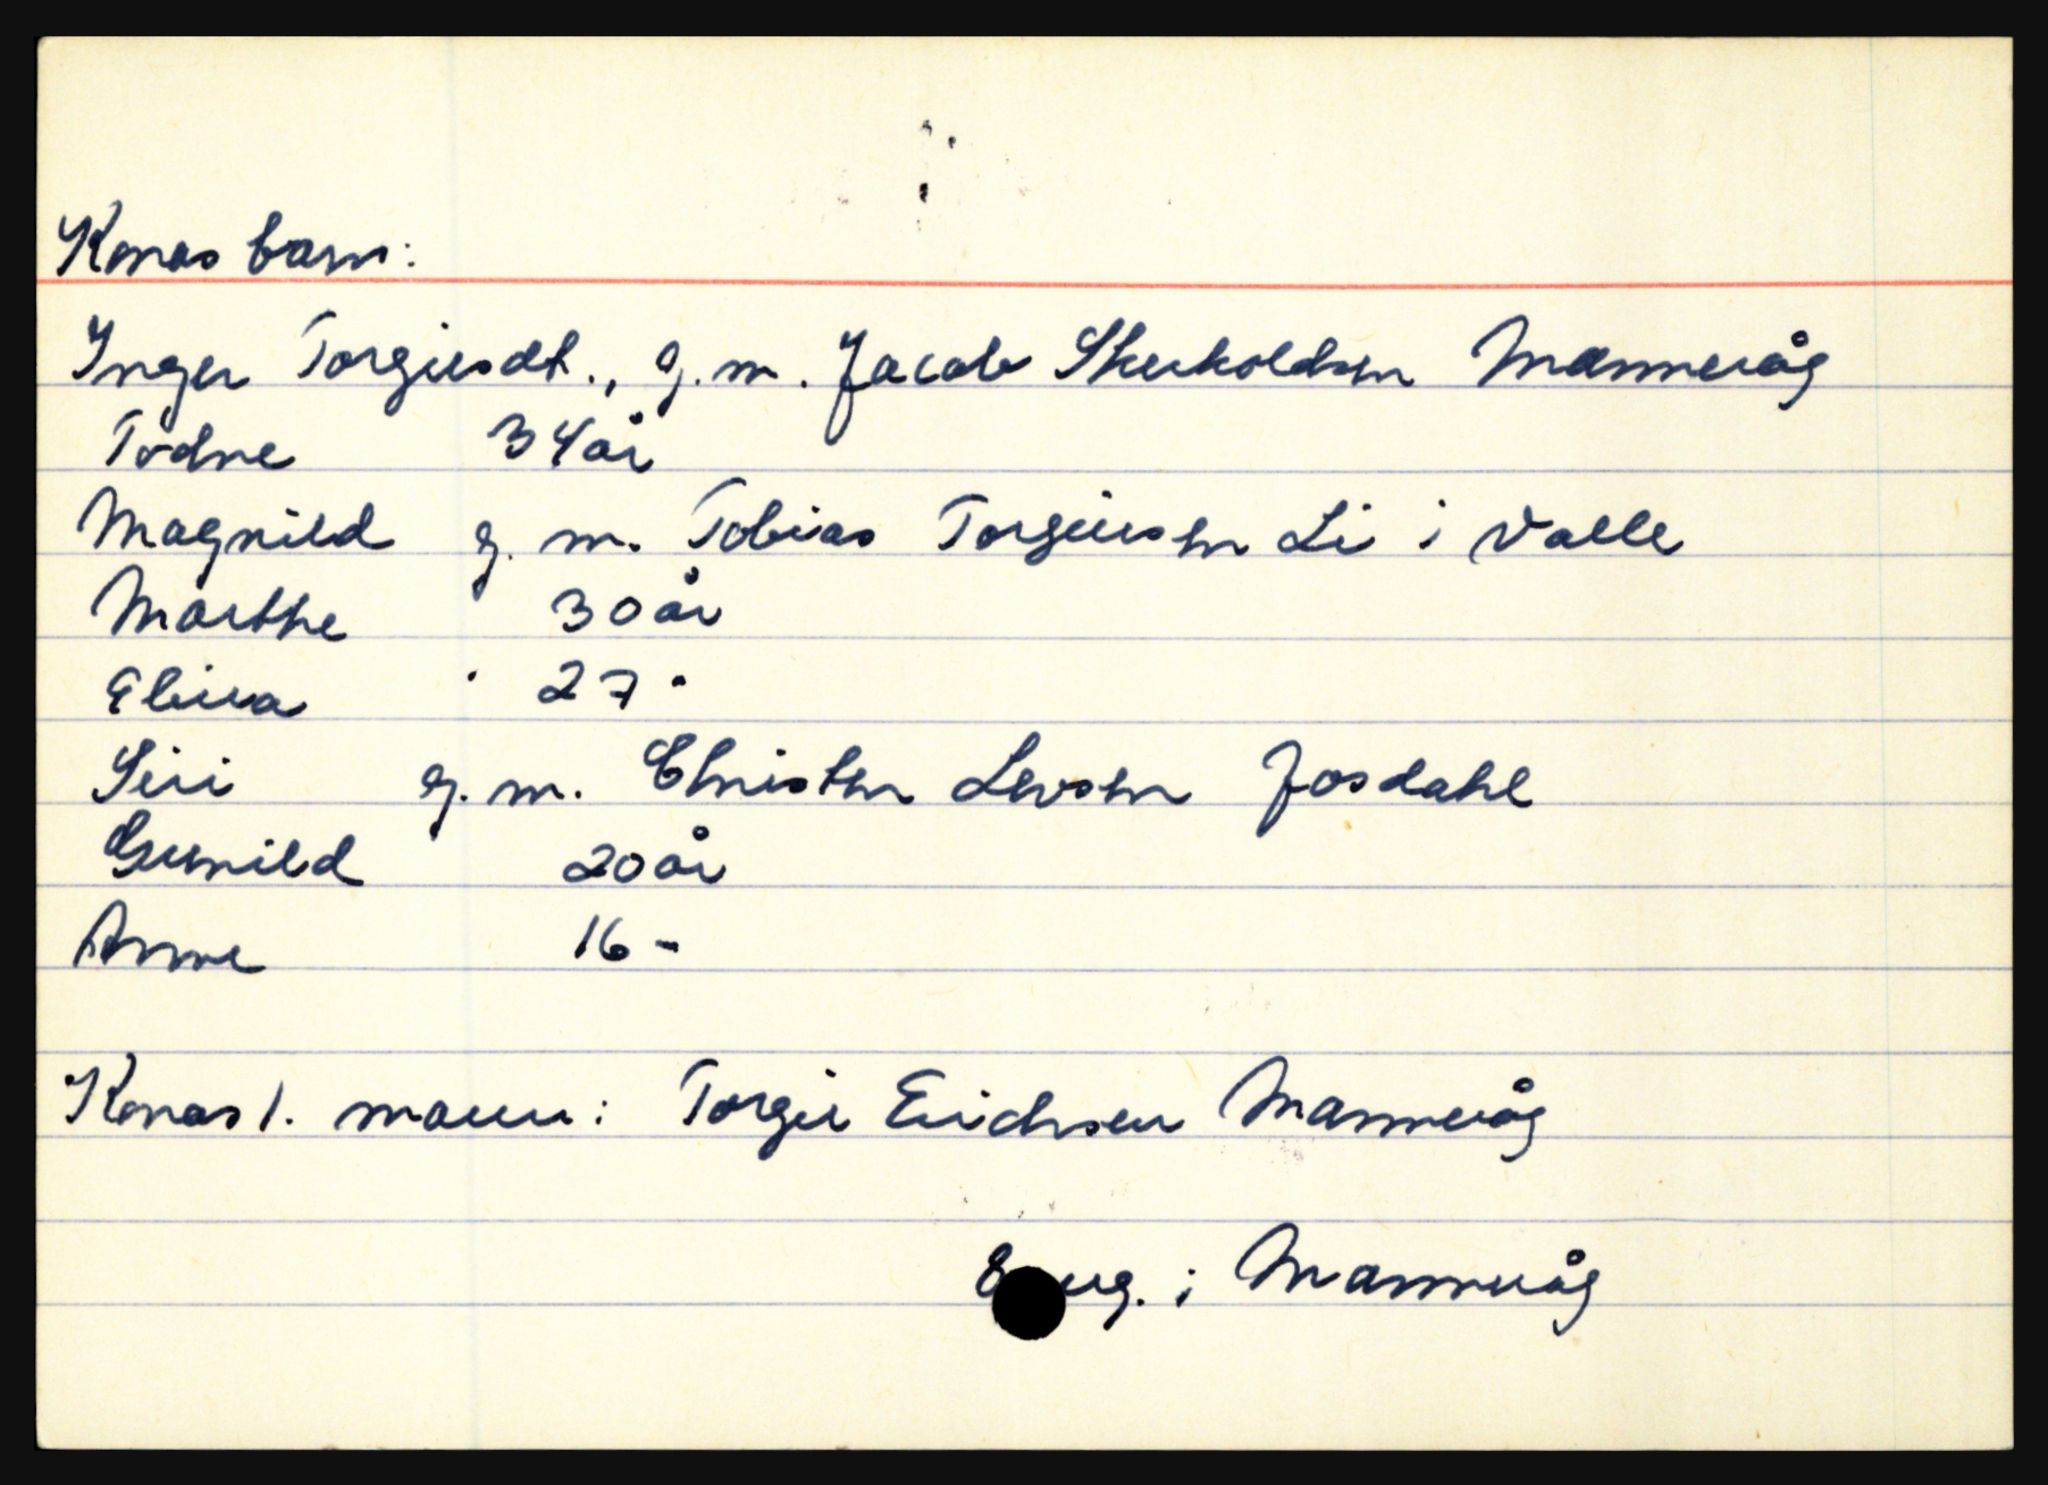 Konas barn:
Inger Torgiesdt., g.m. Jacob Sherkoldsen Manneråg
Todne 34 år
Magnild g. m. Tobias Torgiersen Li i Valle
Marthe 30 år
Elivra 27 "
Siri g. m. Christen Levsen Josdahl
Gunild 20 år
Anne 16 -
Konas 1. mann: Torgir Erichsen Manneråg
i Manneråg